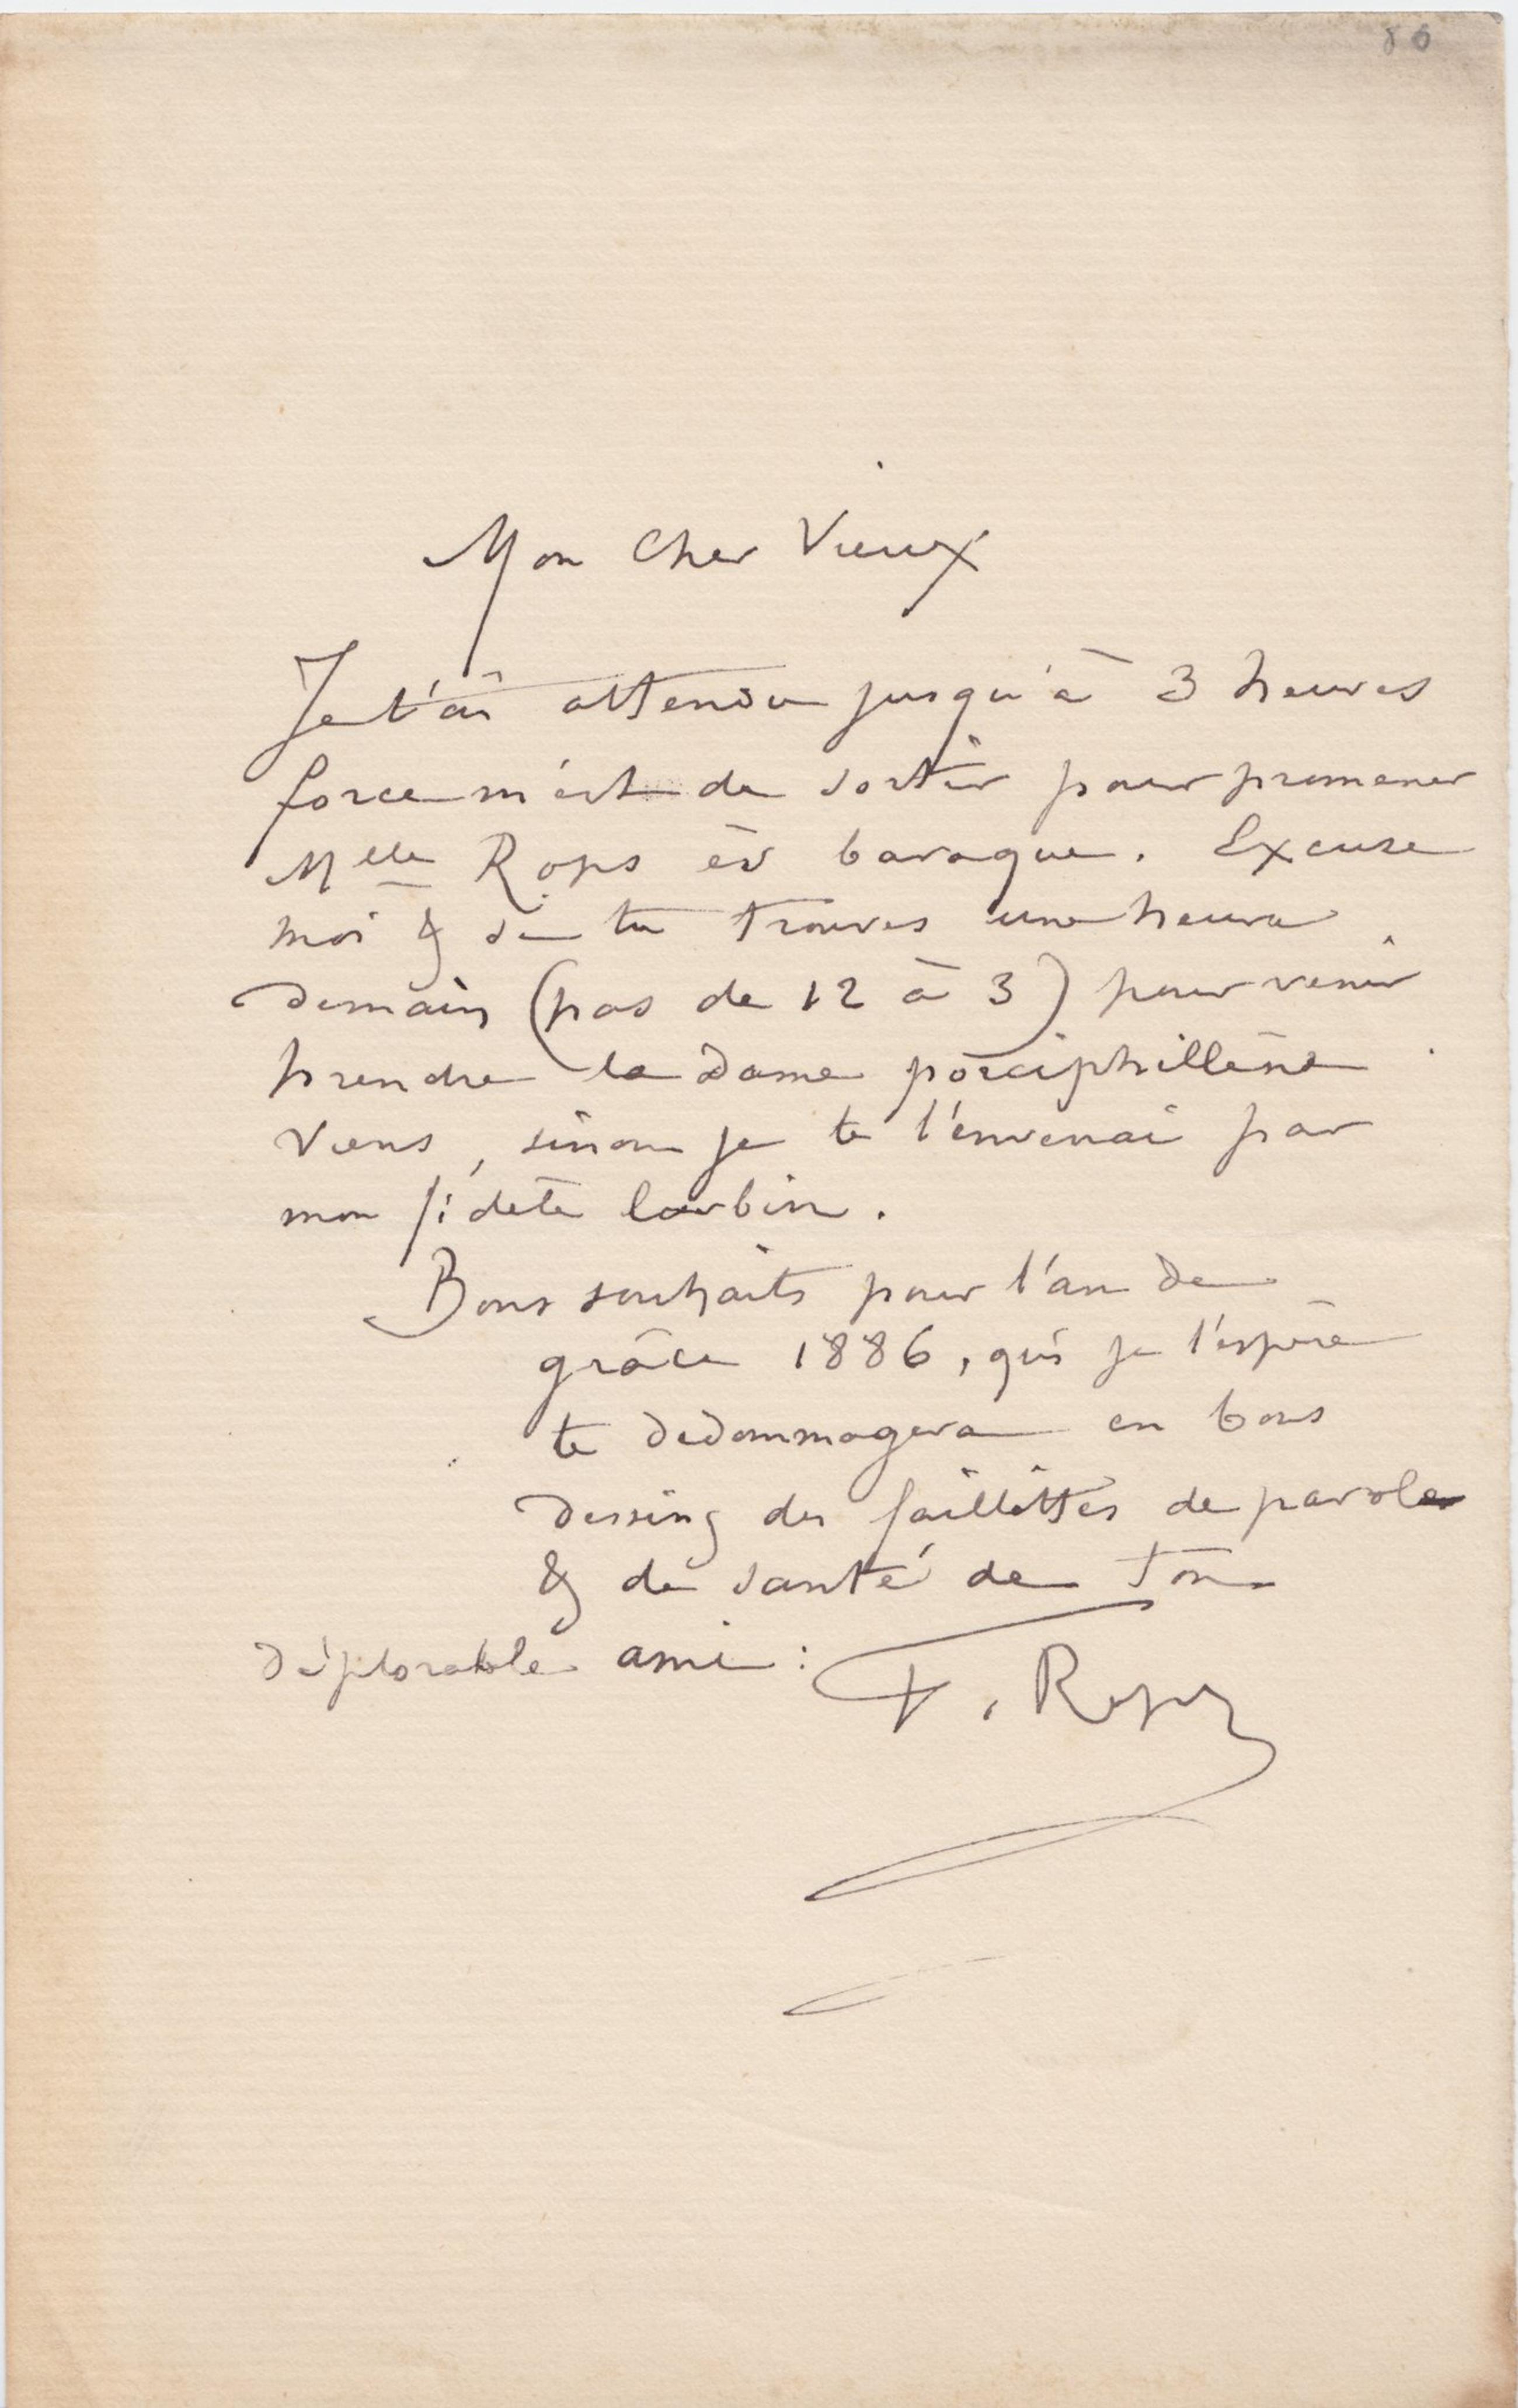 86
Mon Cher Vieux
Je t'ai attendu jusqu'à 3 heures
force m'est de sortir pour promener
Melle Rops ès baraque. Excuse
moi & si tu trouves une heure
demain (pas de 12 à 3) pour venir
prendre la Dame porciphillène
viens, sinon je te l'enverrai par
mon fidèle larbin.
Bons souhaits pour l'an de
grâce 1886, qui je l'espère
te dédommagera en bons
dessins des faillittes de parole
& de santé de ton
déplorable ami :
F. Rops